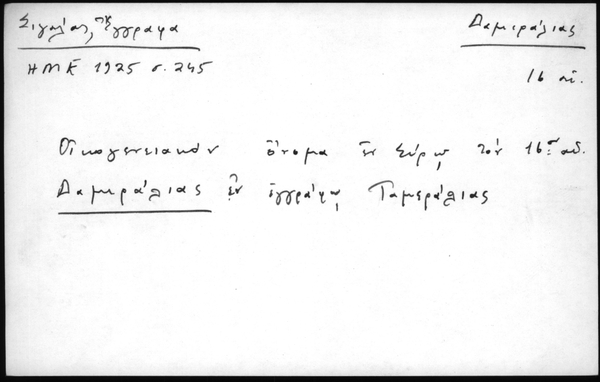 Σιγάλας, Ἔγγραφα
Δαμιράλιας
ΗΜΕ 1925 σ. 245
16 αἰ.
Οἰκογενειακὸν ὄνομα ἐν Σύρῳ τὸν 16ον αἰ.
Δαμιράλιας ἐν ἐγγράφῳ Ταμεράλιας